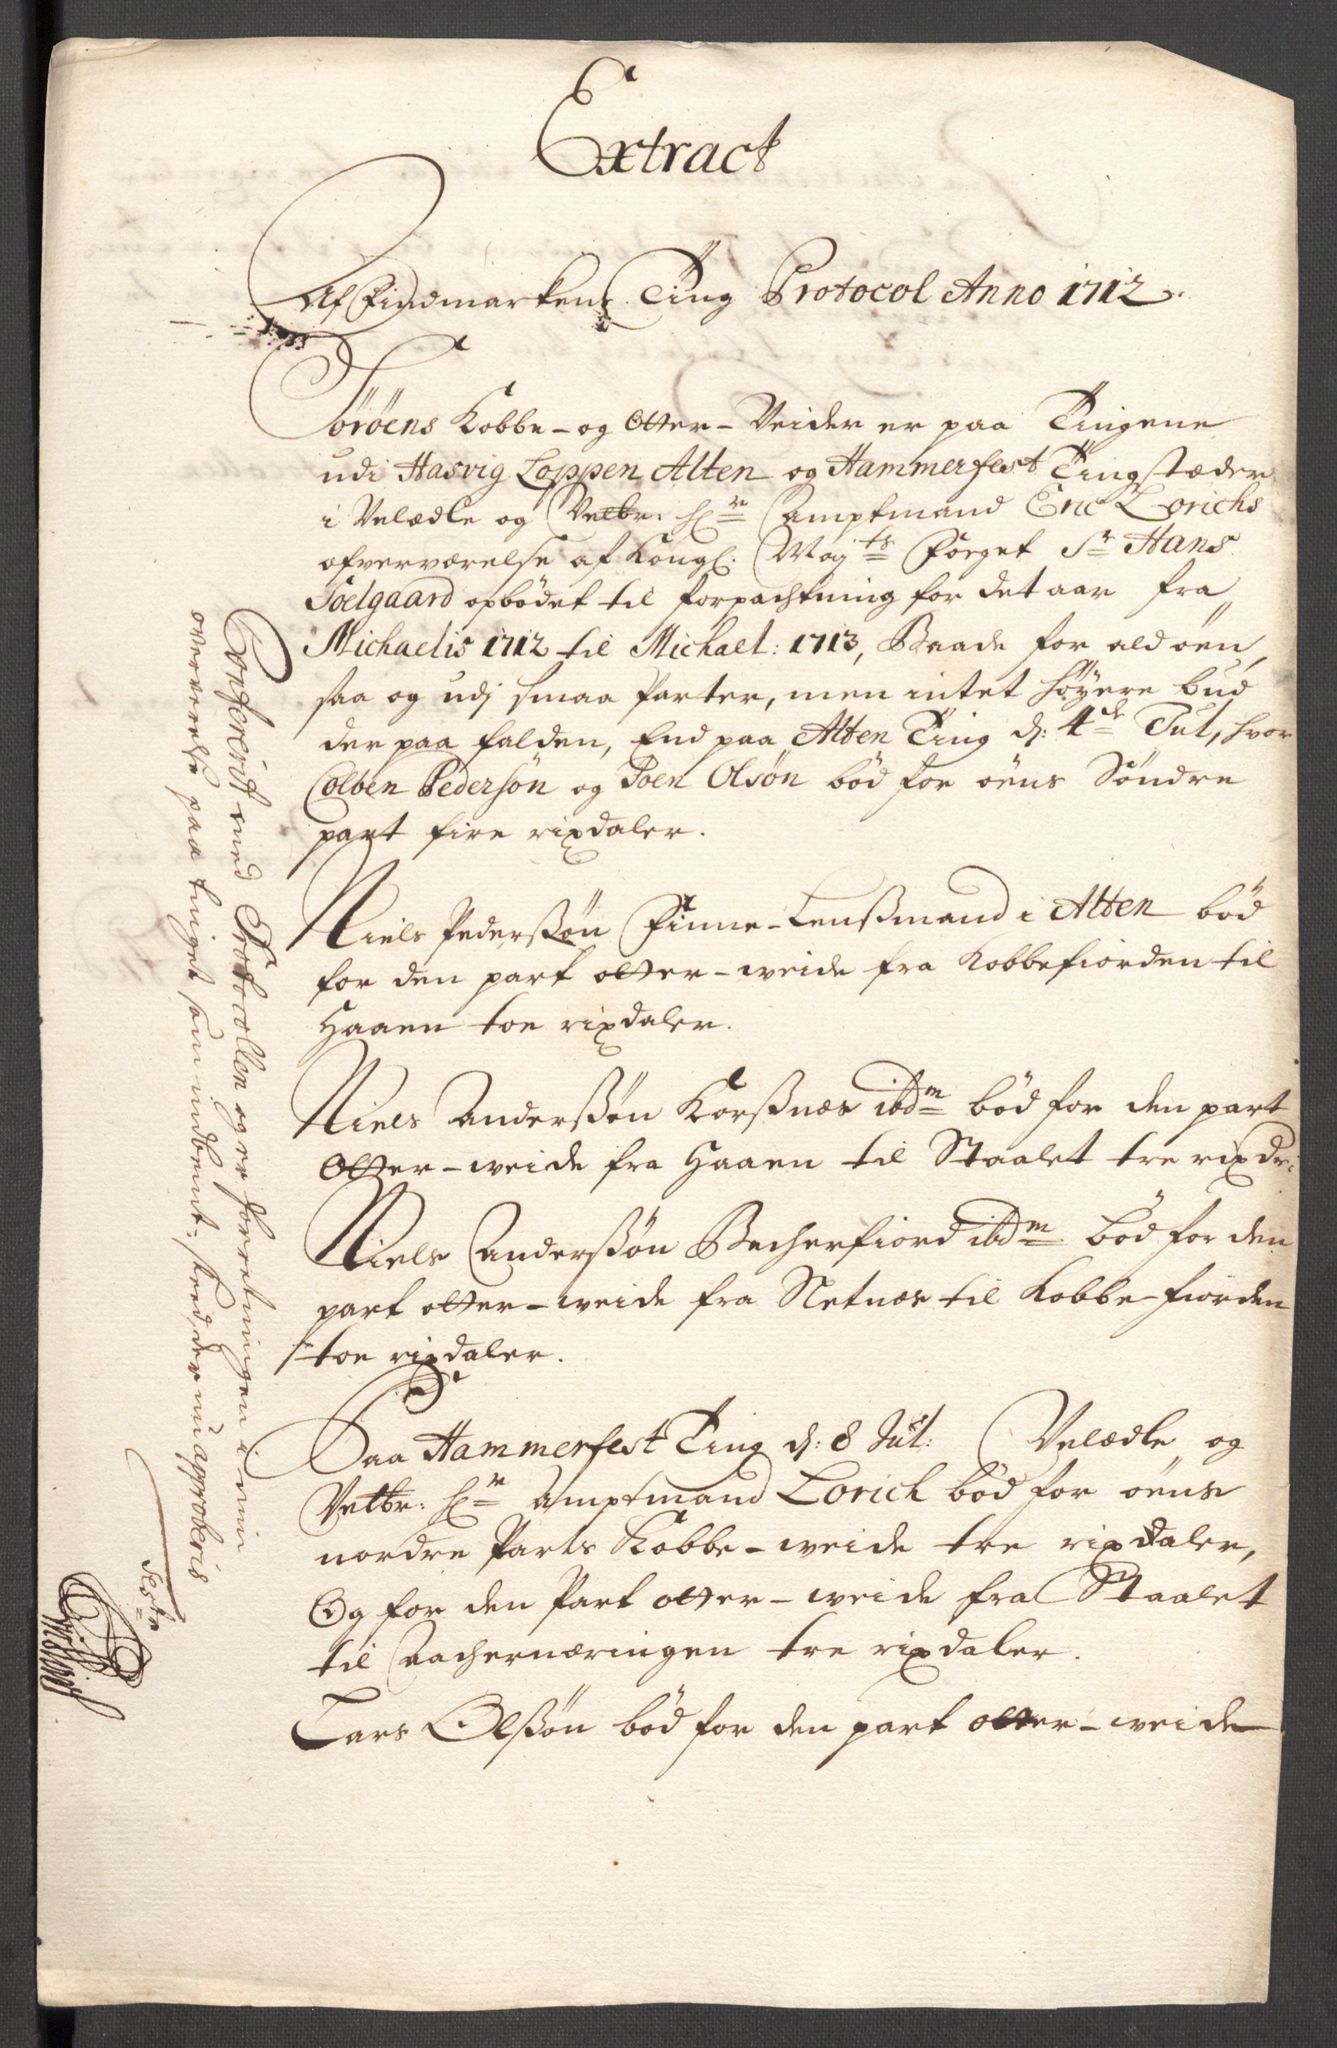 Extract
Af Findmarkens Ting Protocol Anno 1712.
Söröens Kobbe- og Otter-Veider er paa Tingene
udi Hasvig Loppen Alten og Hammerfest Tingstæder
i Velædle og Velbr: Hr Amptmand Eric Lorichs
ofverværelse af Kongl: Majts Foeget Sr Hans
Soelgaard opbödet til forpachtning for det aar fra
Michaelis 1712 til Michael: 1713, Baade for ald öen,
saa og udj smaa Parter, men intet höyere bud
der paa falden, End paa Alten Ting d: 4de Jul, hvor
Colben Pedersön og Joen Olsön böd for öens Söndre
part fire rixdaler.
Niels Pederssön Finne-Lenssmand i Alten böd
for den part otter-weide fra Kobbefiorden til
Haaen toe rixdaler.
Niels Anderssön Korssnæs ibdm böd for den part
Otter-weide fra Haaen til Staalet tre rixdr:
Niels Anderssön Becherfiord ibdm böd for den
part otter-weide fra Netnæs til Kobbe-fiorden
toe rixdaler.
Paa Hammerfest Ting d: 8 Jul: Velædle og
Velbr: Hr Amptmand Lorich böd for öens
nordre Parts Kobbe-weide tre rixdaler,
Og for den Part otter-weide fra Staalet
til Aachernæringen tre rixdaler.
Lars Olssön böd for den part otter-weide
Confererit med Protocollen og er forretningen i min
oververelse paa tinget saa udbent, sted, der